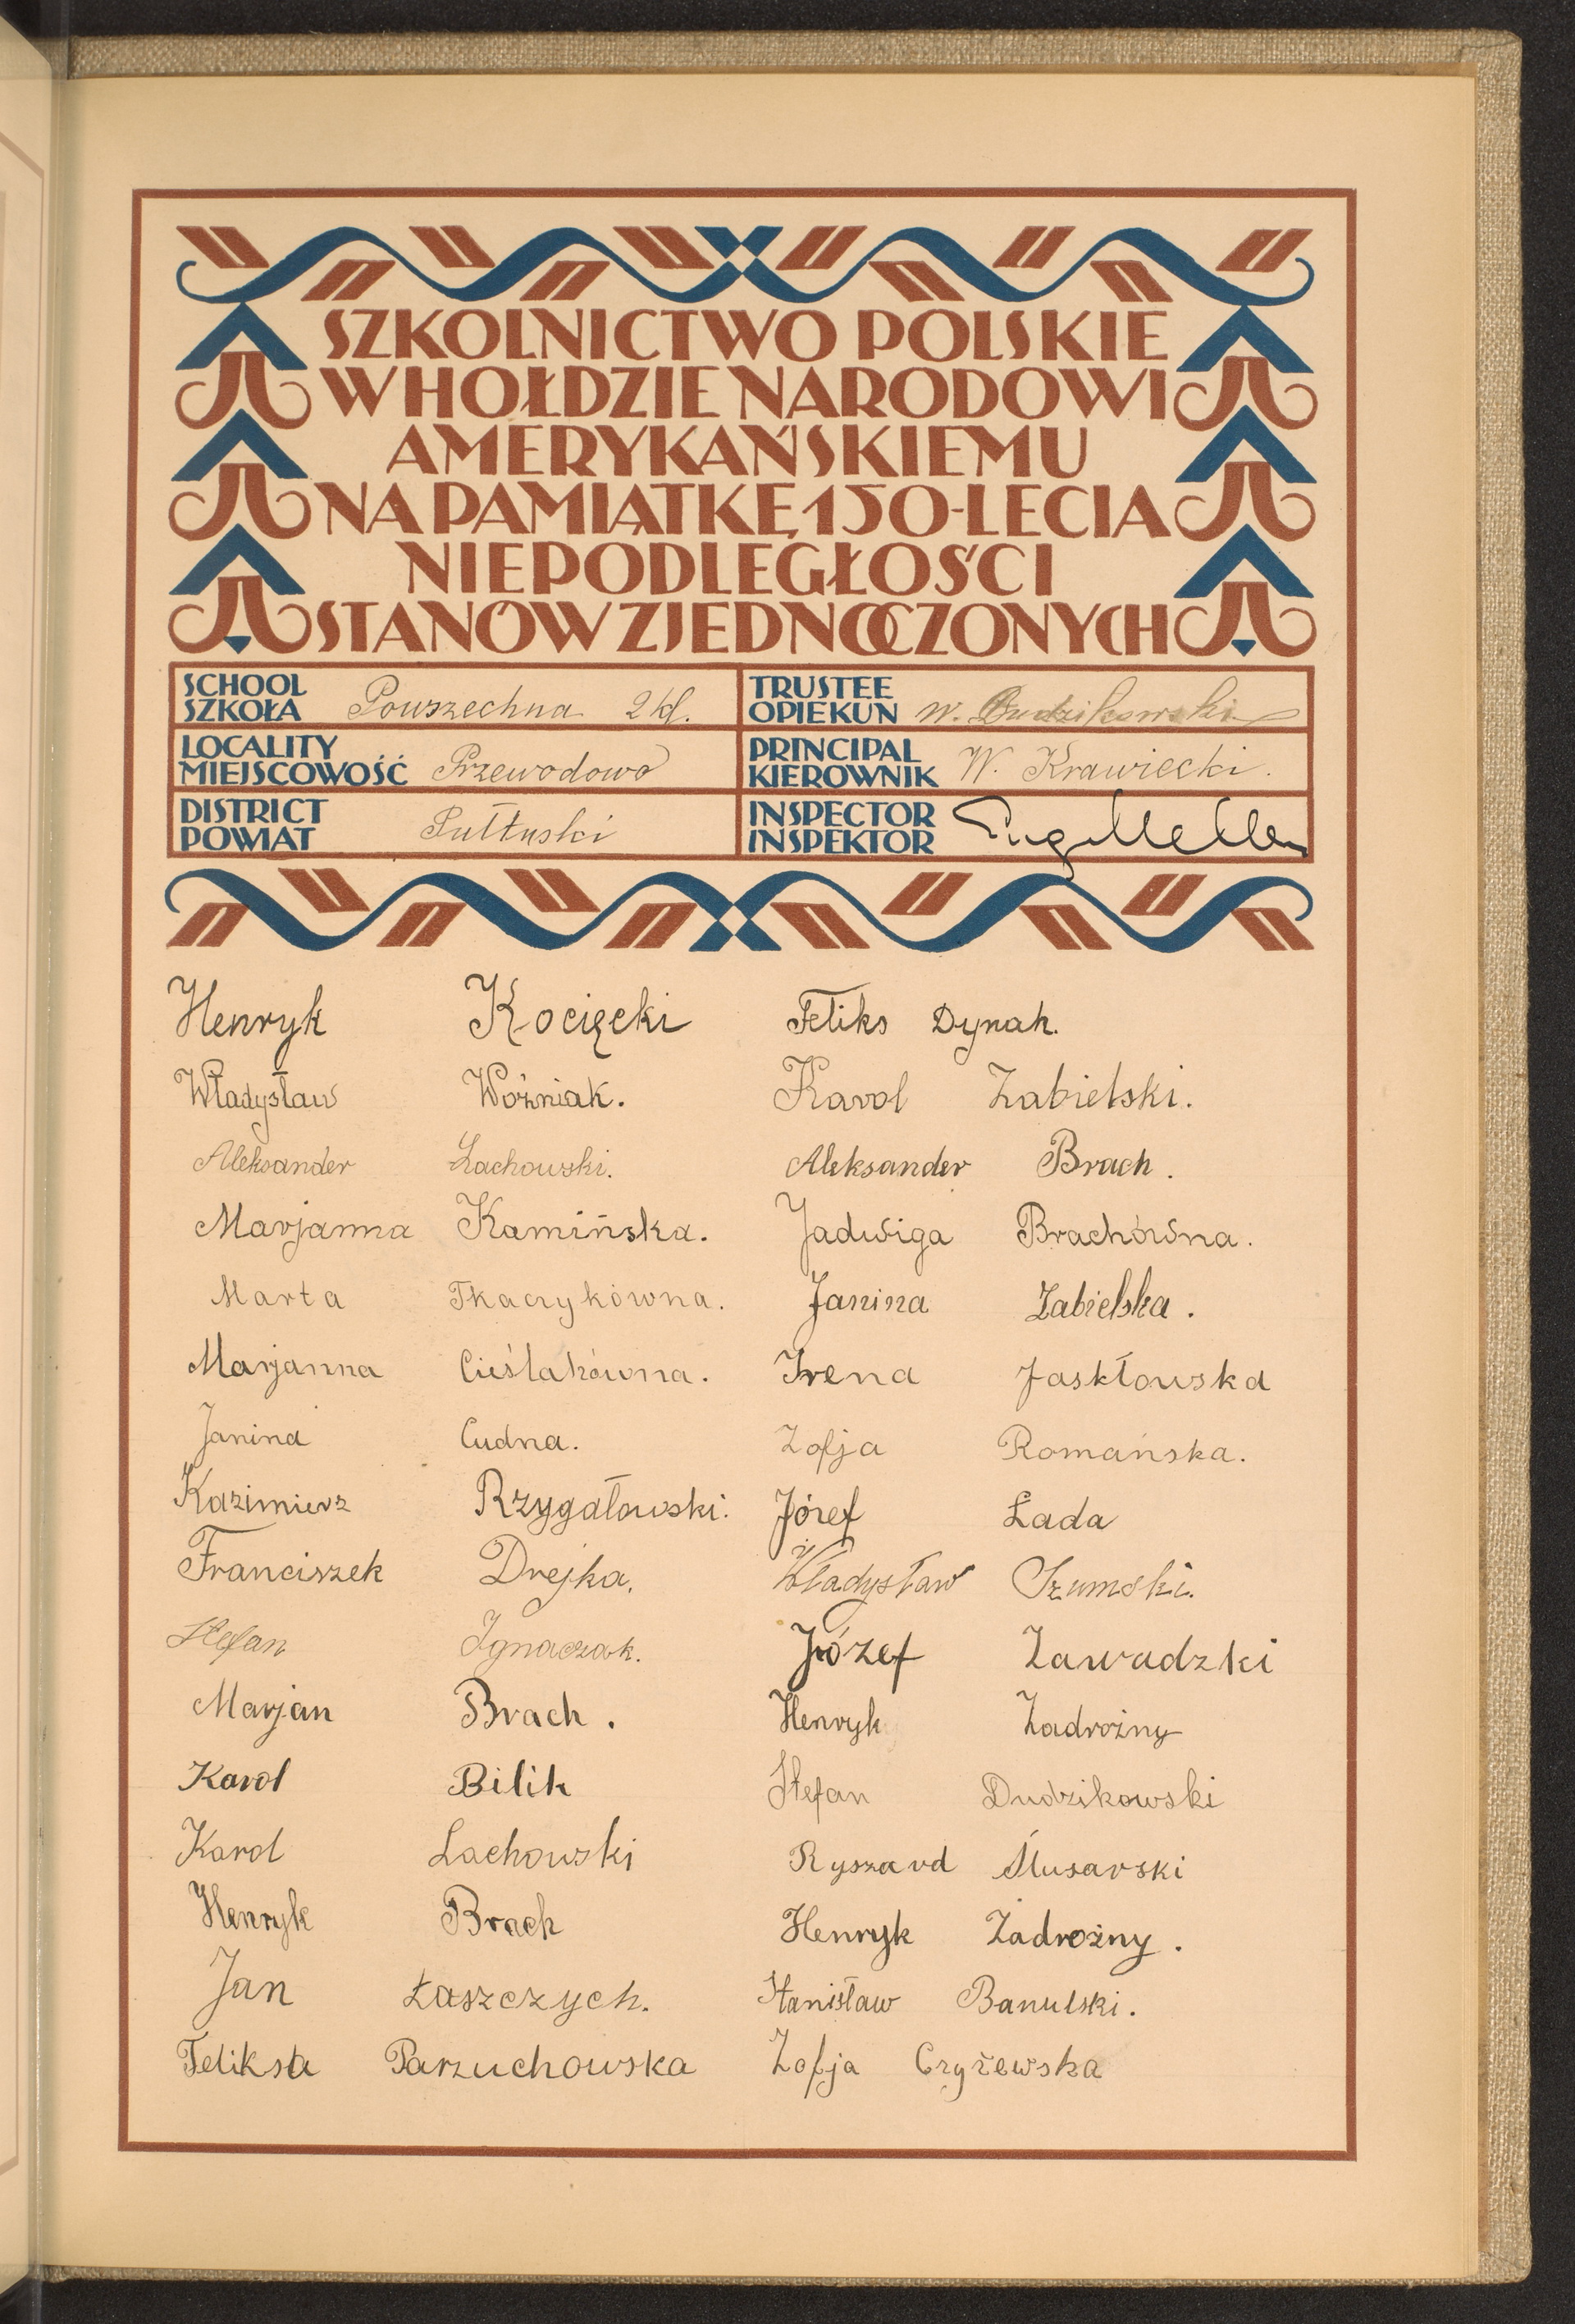 SZKOLNICTWO POLSKIE
W HOŁDZIE NARODOWI
AMERYKAŃSKIEMU
NA PAMIĄTKĘ 150-LECIA
NIEPODLEGŁOŚCI
STANÓW ZJEDNOCZONYCH
SCHOOL
SZKOŁA Powszechna 2 kl.
TRUSTEE
OPIEKUN W. Dudzikowski
LOCALITY
MIEJSCOWOŚĆ Przewodowo
PRINCIPAL
KIEROWNIK W. Krawiecki.
DISTRICT
POWIAT Pułtuski
INSPECTOR
INSPEKTOR
Henryk Kocięcki
Władysław Woźniak.
Aleksander Lachowski.
Marjanna Kamińska.
Marta Tkaczykówna.
Marjanna Cieślakówna.
Janina Cudna.
Kazimierz Rzygałowski.
Franciszek Drejka.
Stefan Ignaczak.
Marjan Brach.
Karol Bilik
Karol Lachowski
Henryk Brach
Jan Łaszczych.
Feliksa Parzuchowska
Feliks Dynak.
Karol Zabielski.
Aleksander Brach.
Jadwiga Brachówna.
Janina Zabielska.
Irena Jaskłowska
Zofja Romańska.
Józef Łada
Władysław Szumski.
Józef Zawadzki
Henryk Zadrożny
Stefan Dudzikowski
Ryszard Ślusarski
Henryk Zadrożny.
Stanisław Banulski.
Zofja Czyżewska